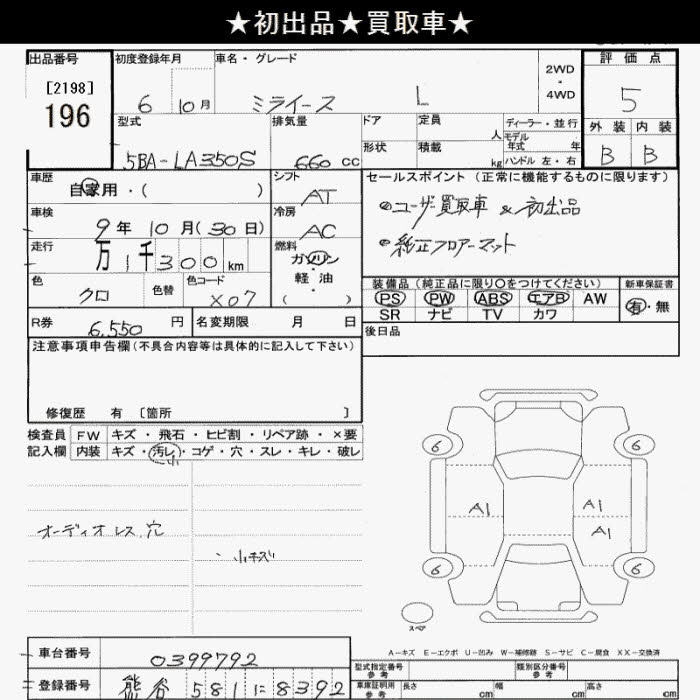 ★初出品★買取車★
出品番号 初度登録年月 車名・グレード 2WD・4WD 評価点
[2198]
196
6 10月 ミライース L 5
型式 排気量 ドア 定員 人 ディーラー・並行 外装 内装
モデル年式 年
5BA-LA350S 660 cc 形状 積載 kg ハンドル 左・右 B B
車歴 自家用・( ) シフト AT セールスポイント(正常に機能するものに限ります)
車検 9年10月(30日) 冷房 AC ユーザー買取車 & 初出品
走行 万1千300km 燃料 ガソリン 軽油 ( ) 純正フロアーマット
色 クロ 色替 色コード X07
装備品(純正品に限り○をつけてください) 新車保証書
PS PW ABS エアB AW 有・無
SR ナビ TV カワ
R券 6,550円 名変期限 月 日
後日品
注意事項申告欄(不具合内容等は具体的に記入して下さい)
修復歴 有 [箇所 ]
検査員 FW キズ・飛石・ヒビ割・リペア跡・×要
記入欄 内装 キズ・汚レ・コゲ・穴・スレ・キレ・破レ
小
オーディオレス穴
・小キズ
6 6
A1 A1
A1
6 6
スペア
A-キズ E-エクボ U-凹み W-補修跡 S-サビ C-腐食 XX-交換済
車台番号 0399792
型式指定番号 参考 類別区分番号 参考
登録番号 熊谷 581 に 8392
車庫証明用 参考 長さ cm 幅 cm 高さ cm